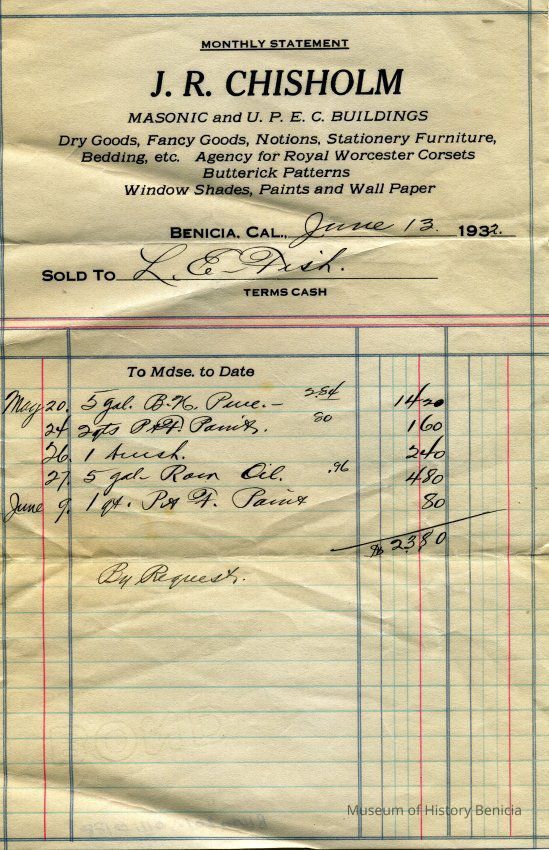 MONTHLY STATEMENT
J. R. CHISHOLM
MASONIC and U. P. E. C. BUILDINGS
Dry Goods, Fancy Goods, Notions, Stationery Furniture,
Bedding, etc. Agency for Royal Worcester Corsets
Butterick Patterns
Window Shades, Paints and Wall Paper
BENICIA, CAL., June 13. 1932.
SOLD TO L. E. Fish.
TERMS CASH
To Mdse. to Date
May 20. 5 gal. B.H. 284 1420
24 2 qts P&F Paint. 80 160
26. 1 Brush. 240
27. 5 gal. Raw Oil. .96 480
June 9. 1 qt. P&F. Paint 80
$ 23.80
By Request.
Museum of History Benicia